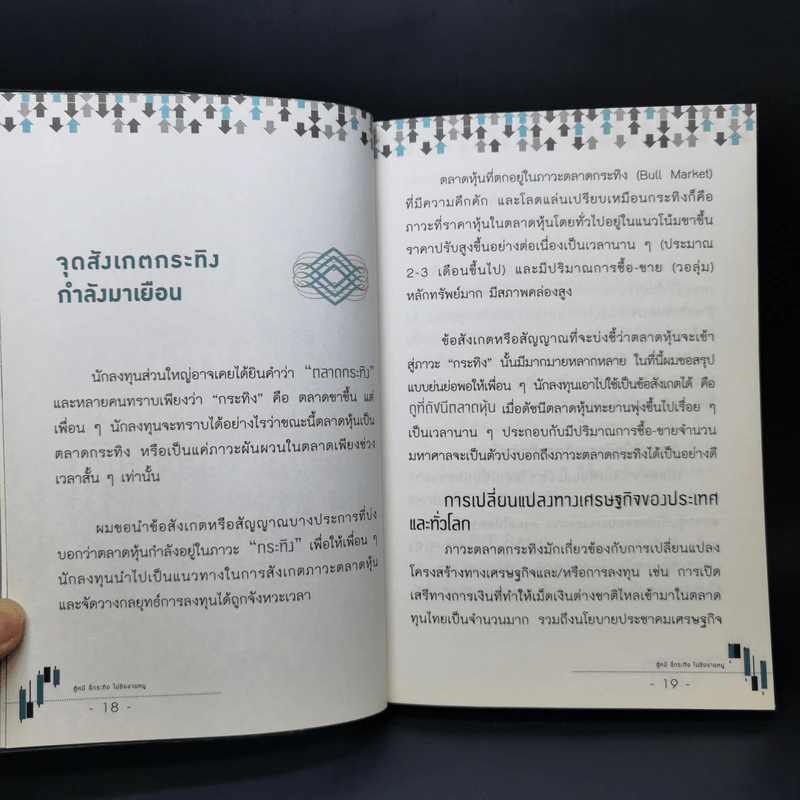 จุดสังเกตกระทิง
กำลังมาเยือน
นักลงทุนส่วนใหญ่อาจเคยได้ยินคำว่า “ตลาดกระทิง”
และหลายคนทราบเพียงว่า “กระทิง” คือ ตลาดขาขึ้น แต่
เพื่อน ๆ นักลงทุนจะทราบได้อย่างไรว่าขณะนี้ตลาดหุ้นเป็น
ตลาดกระทิง หรือเป็นแค่ภาวะผันผวนในตลาดเพียงช่วง
เวลาสั้น ๆ เท่านั้น
ผมขอนำข้อสังเกตหรือสัญญาณบางประการที่บ่ง
บอกว่าตลาดหุ้นกำลังอยู่ในภาวะ “กระทิง” เพื่อให้เพื่อน ๆ
นักลงทุนนำไปเป็นแนวทางในการสังเกตภาวะตลาดหุ้น
และจัดวางกลยุทธ์การลงทุนได้ถูกจังหวะเวลา
สู้หมี ขี่กระทิง ไม่ชิงขายหมู
- 18 -
ตลาดหุ้นที่ตกอยู่ในภาวะตลาดกระทิง (Bull Market)
ที่มีความคึกคัก และโลดแล่นเปรียบเหมือนกระทิงก็คือ
ภาวะที่ราคาหุ้นในตลาดหุ้นโดยทั่วไปอยู่ในแนวโน้มขาขึ้น
ราคาปรับสูงขึ้นอย่างต่อเนื่องเป็นเวลานาน ๆ (ประมาณ
2-3 เดือนขึ้นไป) และมีปริมาณการซื้อ-ขาย (วอลุ่ม)
หลักทรัพย์มาก มีสภาพคล่องสูง
ข้อสังเกตหรือสัญญาณที่จะบ่งชี้ว่าตลาดหุ้นจะเข้า
สู่ภาวะ “กระทิง” นั้นมีมากมายหลากหลาย ในที่นี้ผมขอสรุป
แบบย่นย่อพอให้เพื่อน ๆ นักลงทุนเอาไปใช้เป็นข้อสังเกตได้ คือ
ดูที่ดัชนีตลาดหุ้น เมื่อดัชนีตลาดหุ้นทะยานพุ่งขึ้นไปเรื่อย ๆ
เป็นเวลานาน ๆ ประกอบกับมีปริมาณการซื้อ-ขายจำนวน
มหาศาลจะเป็นตัวบ่งบอกถึงภาวะตลาดกระทิงได้เป็นอย่างดี
การเปลี่ยนแปลงทางเศรษฐกิจของประเทศ
และทั่วโลก
ภาวะตลาดกระทิงมักเกี่ยวข้องกับการเปลี่ยนแปลง
โครงสร้างทางเศรษฐกิจและ/หรือการลงทุน เช่น การเปิด
เสรีทางการเงินที่ทำให้เม็ดเงินต่างชาติไหลเข้ามาในตลาด
ทุนไทยเป็นจำนวนมาก รวมถึงนโยบายประชาคมเศรษฐกิจ
สู้หมี ขี่กระทิง ไม่ชิงขายหมู
- 19 -